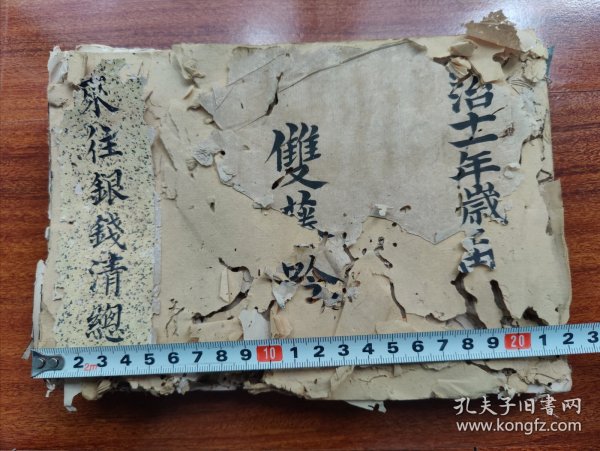 治十一年歲
雙
吟
來往銀錢清總
2 3 4 5 6 7 8 9 10 1 2 3 4 5 6 7 8 9 20 1 2 3
2m
孔夫子旧書网
www.kongfz.com